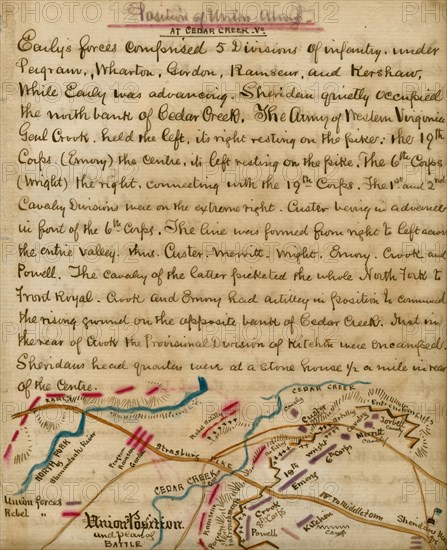 Position of Union Army
AT CEDAR CREEK. Va.
Early's forces comprised 5 Divisions of infantry. under
Pegram,, Wharton, Gordon, Ramseur, and Kershaw,
While Early was advancing. Sheridan quietly occupied
the north bank of Cedar Creek. The Army of Western Virginia
Genl Crook. held the left, its right resting on the pike: the 19th
Corps. (Emory) the Centre, its left resting on the pike. The 6th Corps
(Wright) the right, connecting with the 19th Corps. The 1st and 2nd
Cavalry Division were on the extreme right. Custer being in advance
in front of the 6th Corps. The line was formed from right to left across
the entire valley. thus. Custer. Merritt. Wright. Emory. Crook and
Powell. The cavalry of the latter picketed the whole North Fork to
Front Royal. Crook and Emory had artillery in position to command
the rising ground on the opposite bank of Cedar Creek. Just in
the rear of Crook the Provisional Division of Kitchin were encamped.
Sheridans head quarters were at a stone house 1/2 a mile in rear
of the Centre.
EARLY
CEDAR CREEK
NORTH FORK
Shenandoah River
Strasburg
Pegram
Ramseur
Gordon
Custer
Cavalry
Torbert
Merritt
6th Corps
19th
Emory
CEDAR CREEK
Crook
8th Corps
Powell
Kitchin
To Middletown
Sheridan
Union forces
Rebel "
Union Position
and plan of
BATTLE